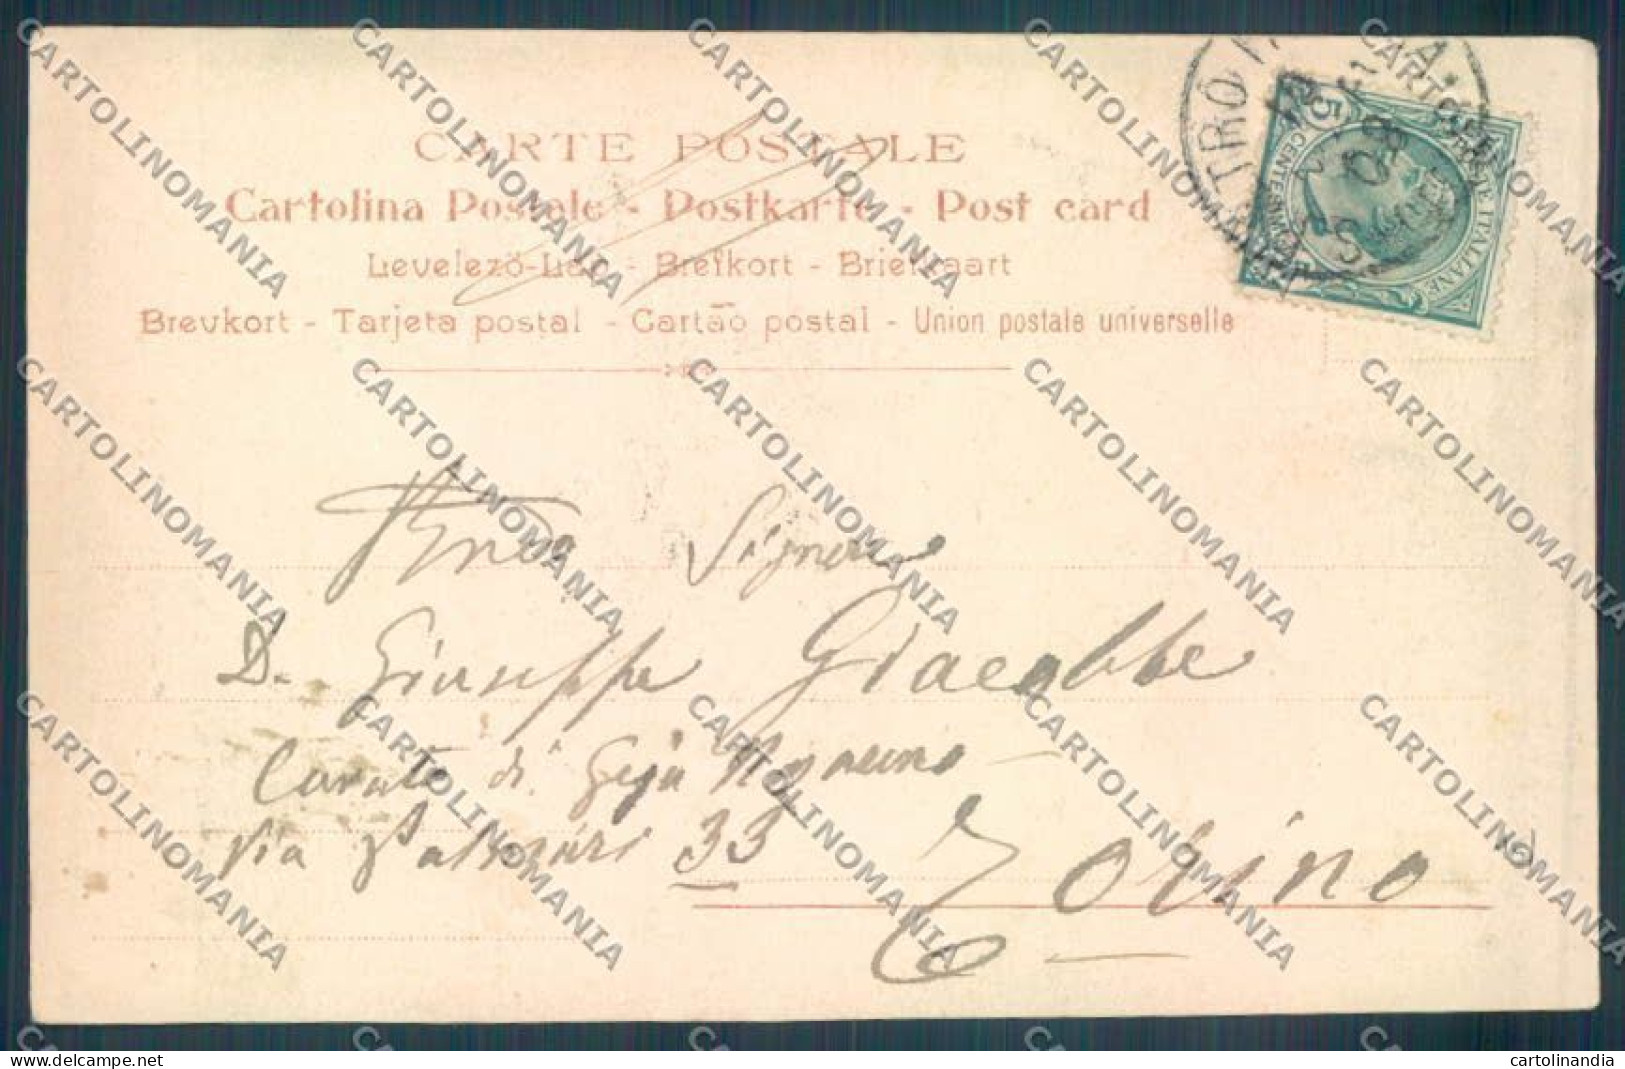 CARTE POSTALE
Cartolina Postale - Postkarte - Post card
Levelező-Lap - Brefkort - Briefkaart
Brevkort - Tarjeta postal - Cartão postal - Union postale universelle
POSTE ITALIANE
CENTESIMI
5
Signore
D. Giuseppe Giacobbe
Curato di Gesù Nazareno
Via Palmieri 33 Torino
CARTOLINOMANIA
cartolinandia